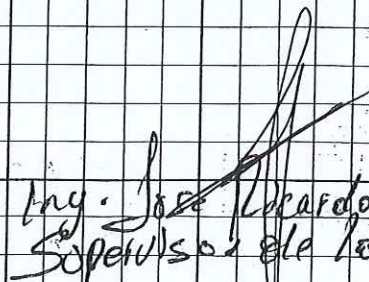 Ing. Jose Ricardo
Supervisor de